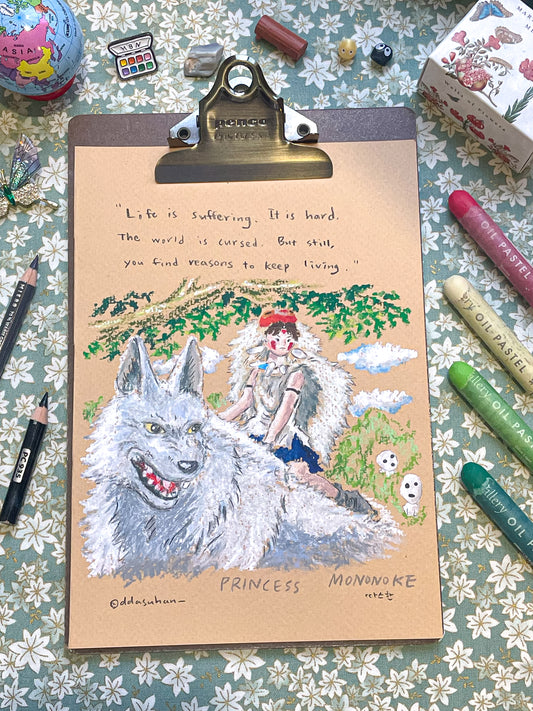 ASIA
penco
"Life is suffering. It is hard.
The world is cursed. But still,
you find reasons to keep living."
PRINCESS MONONOKE
©ddasuhan_
따스한
OIL PASTEL
OIL PASTEL
Gallery OIL PASTEL
Gallery OIL PASTEL
PC935